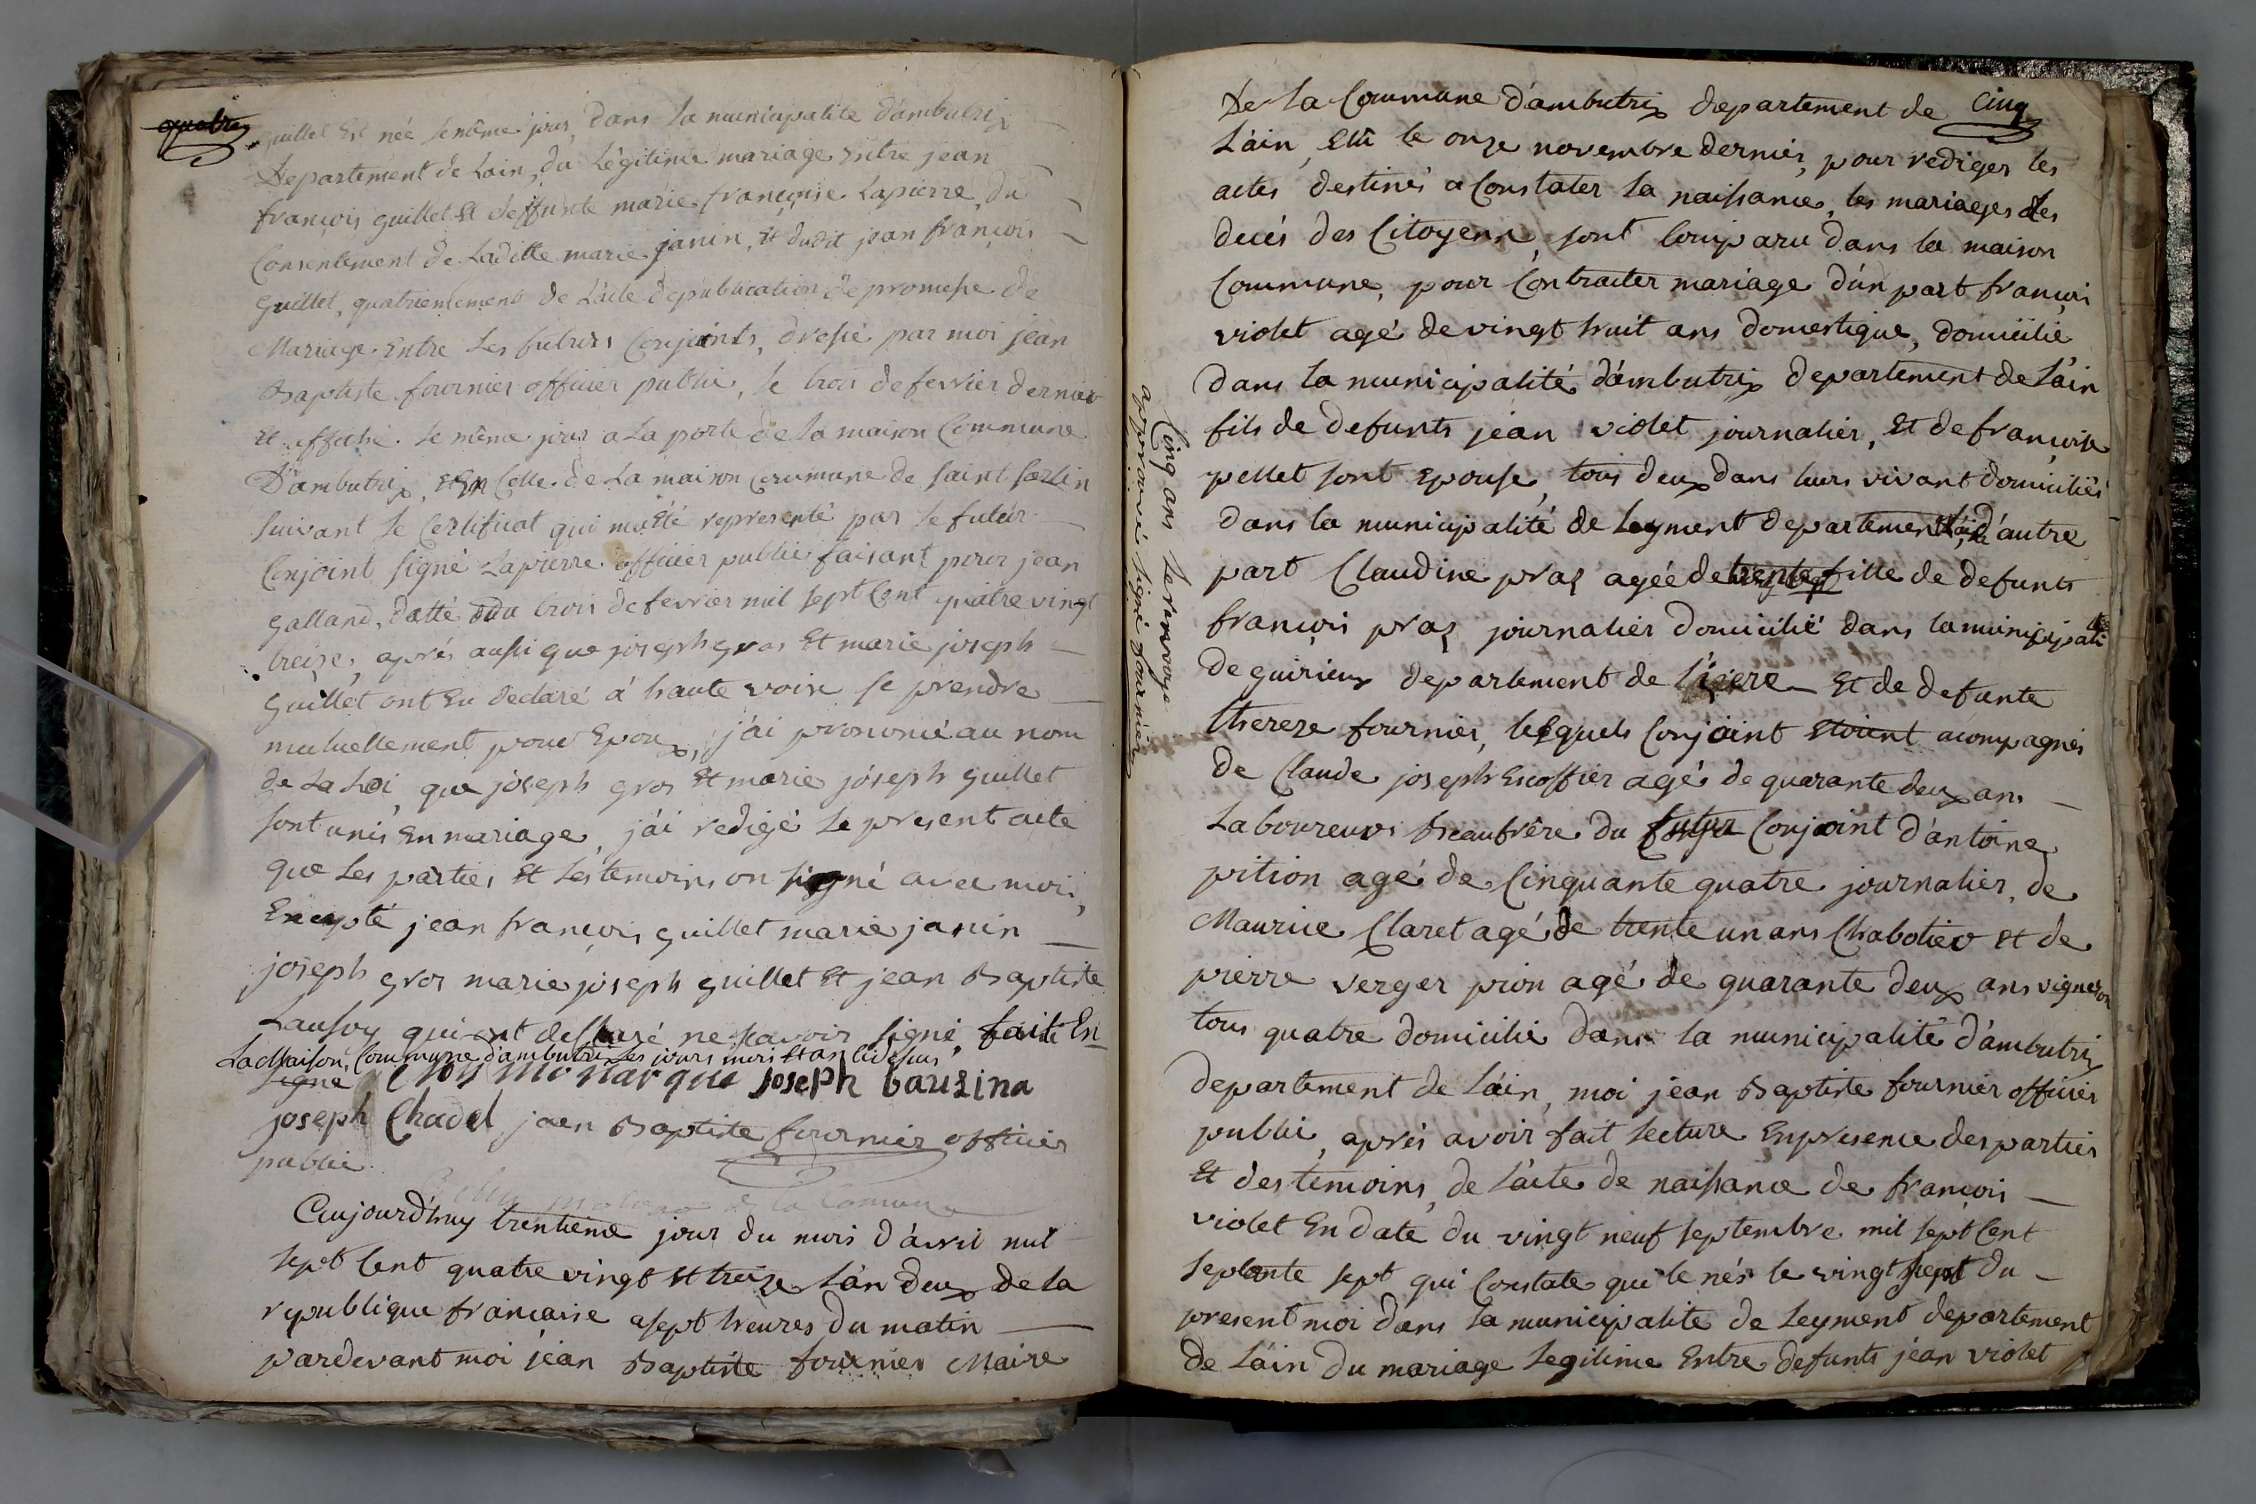 quatre
guillet Est née le même jour, dans la municipalité d'ambutrix
Departement de Lain, du Légitime mariage Entre jean
françois guillet Et deffunte marie françoise Lapierre, du
Consentement de Laditte marie janin, Et dudit jean françois
guillet, quatriemement de L'acte de publication de promesse de
Mariage Entre Les futurs Conjoints, dressé par moi jean
Baptiste fournier officier public, le trois de fevrier dernier
Et affiché le même jour a La porte de la maison Commune
D'ambutrix, Et En Celle de La maison Commune de saint sorlin
suivant le Certificat qui ma Été representé par le futur
Conjoint signé Lapierre officier public faisant pour jean
galland, datté du trois de fevrier mil sept Cent quatre vingt
treize, aprés aussi que joseph gros Et marie joseph
guillet ont Eu declaré á haute voix se prendre
mutuellement pour Epoux, j'ai prononcé au nom
de La Loi, que joseph gros Et marie joseph guillet
sont unis En mariage, j'ai redigé le present acte
que Les parties Et Les temoins on signé avec moi,
Excepté jean françois guillet marie janin
joseph gros marie joseph guillet Et jean Baptiste
qui ont declaré ne scavoir signé, fait En
La Maison Commune d'ambutrix Les jours mois Et an ci dessus
signé monarque joseph bauzina
joseph Chadel jaen Baptiste fournier officier
public
de la Comune
Aujourd'huy trentieme jour du mois d'avril mil
sept Cent quatre vingt Et treize L'an deux de la
republique francaise a sept heures du matin
pardevant moi jean Baptiste fournier Maire
cinq
De la Commune d'ambutrix departement de
L'ain, Elu le onze novembre dernier, pour rediger les
actes destinés a Constater la naissance, les mariages Et les
decés des Citoyens, sont Comparu dans la maison
Commune, pour Contracter mariage d'un part françois
violet agé de vingt huit ans domestique, domicilié
dans la municipalité d'ambutrix departement de L'ain
fils de defunts jean violet journalier, Et de françoise
pellet sont Epouse, tous deux dans leurs vivant domiciliés
dans la municipalité de Leyment departement L'ain d'autre
part Claudine praz agée de trente fille de defunts
françois praz journalier domicilié dans la municipalité
de quirieux departement de l'isere Et de defunte
thereze fournier, lesquels Conjoint Etoient acompagnés
de Claude joseph Escoffier agé de quarante deux ans
Laboureurs Beaufrère du futur Conjoint d'antoine
pition agé de Cinquante quatre journalier, de
Maurice Claret agé de trente un ans Chabotier Et de
pierre verger pion agé de quarante deux ans vigneron
tous quatre domicilié dans la municipalité d'ambutrix
departement de L'ain, moi jean Baptiste fournier officier
public, aprés avoir fait lecture En presence des parties
Et des temoins, de L'acte de naissance de françois
violet En date du vingt neuf septembre mil sept Cent
septante sept qui Constate qui le nés le vingt sept du
present moi dans la municipalité de Leyment departement
de L'ain du mariage Legitime Entre defunts jean violet
Cinq ans Le renvoye
approuvé signé fournier